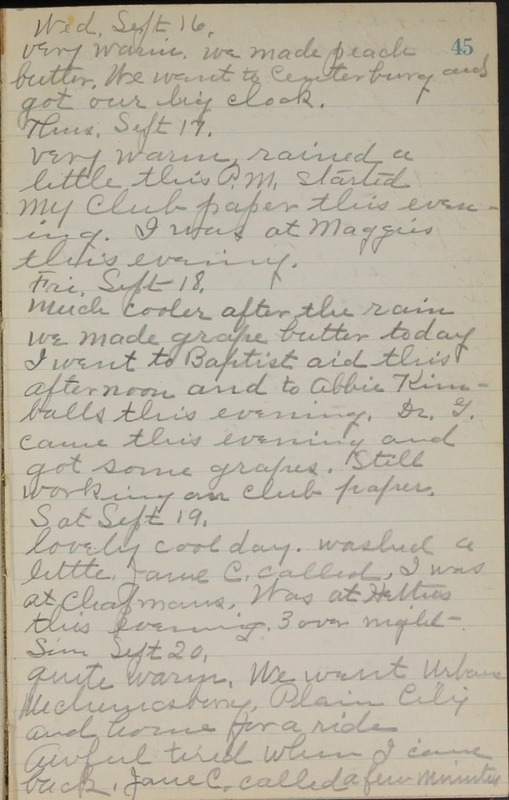 Wed. Sept 16.
45
very warm. We made peach
butter. We went to Centerburg and
got our big clock.
Thus. Sept 17.
very warm, rained a
little this P.M. Started
my Club paper this even-
ing. I was at Maggies
this evening.
Fri. Sept 18.
Much cooler after the rain
we made grape butter today
I went to Baptist aid this
afternoon and to Abbie Kim-
balls this evening. Dr. G.
came this evening and
got some grapes. Still
working on club paper.
Sat Sept 19.
lovely cool day. washed a
little. Jane C. called, I was
at Chapmans. Was at Hetties
this evening. 3 over night-
Sun Sept 20,
quite warm. We went Urbana
Mechanicsburg, Plain City
and home for a ride
Awful tired when I came
back. Jane C. called a few minutes